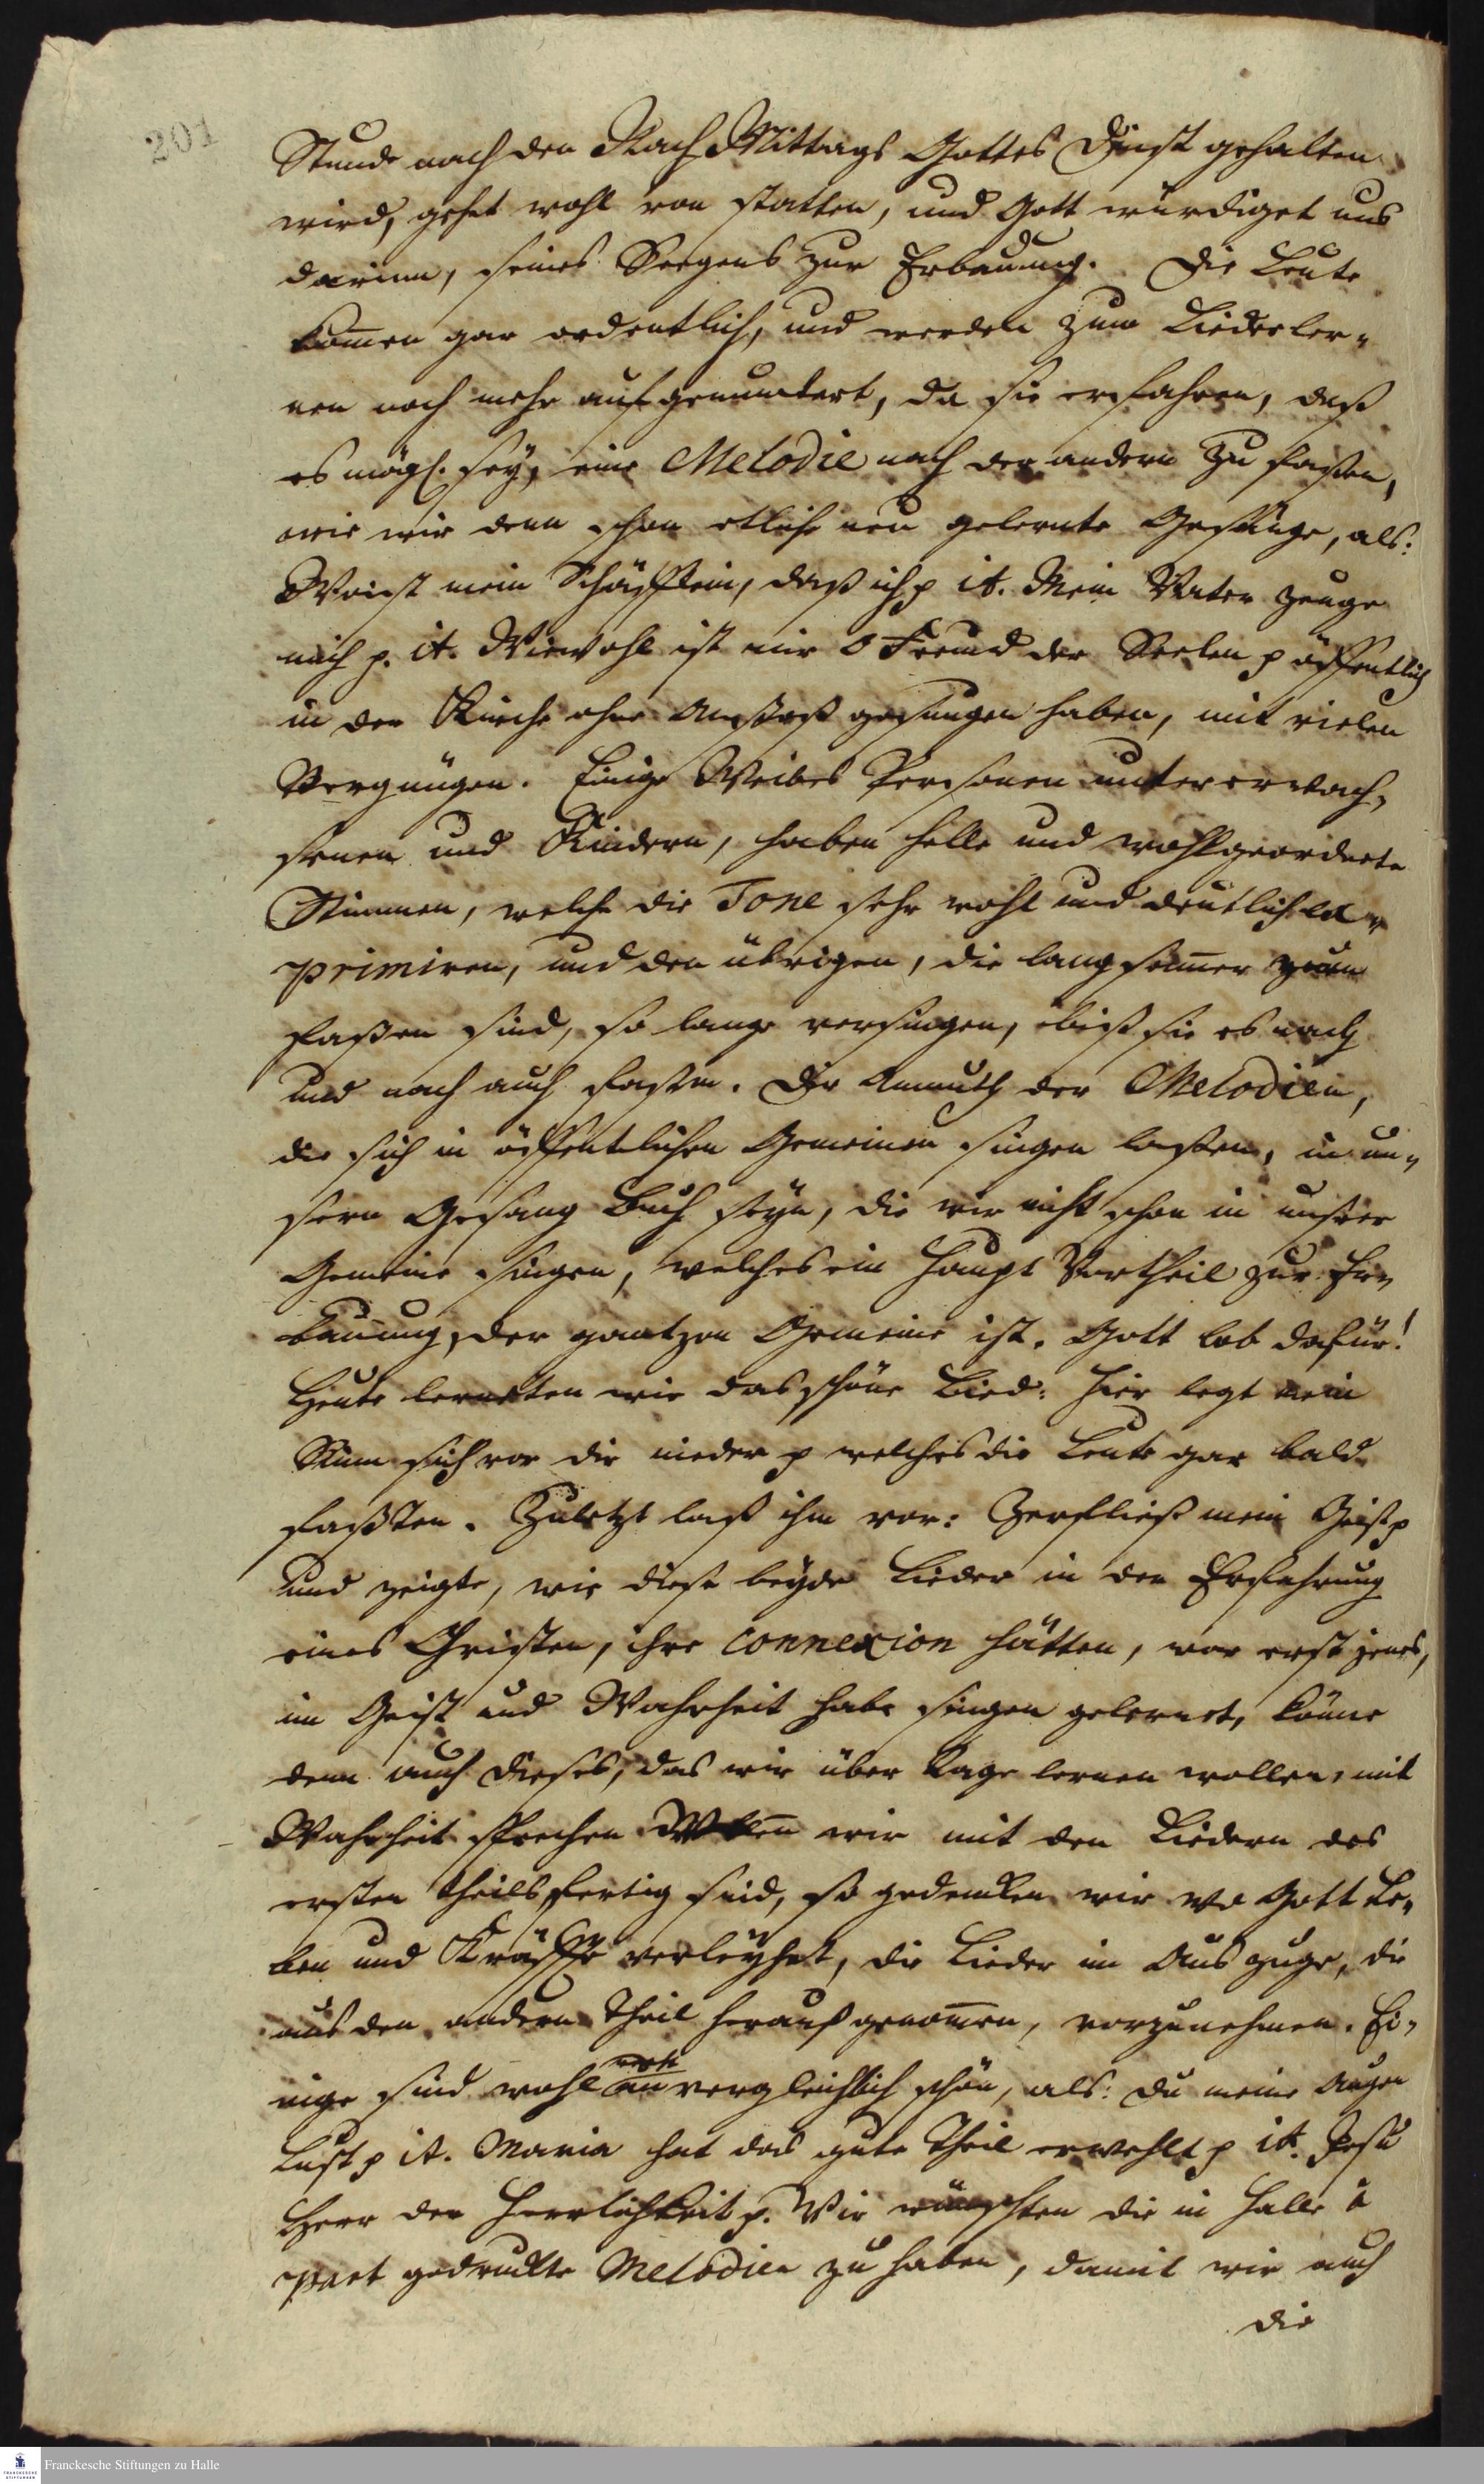 201
Stunde nach den Nach Mittags Gottes Dinst gehalten
wird, gehet wohl von statten, und Gott würdiget uns
darinn, seines Seegens zur Erbauung. Die Leute
kom̄en gar ordentlich, und werden zum Liederler-
nen noch mehr aufgemuntert, da sie erfahren, daß
es mögl. sey, eine Melodie nach der andern zu faßen,
wie wir denn schon etliche neu gelernte Gesänge, als:
Weist mein Schäfflein, daß ich p it. Mein Vater zeuge
mich p. it. Wie wohl ist mir o Freund der Seelen p öffentlich
in der Kirche ohne Anstoß gesungen haben, mit vielen
Vergnügen. Einige Weibes Personen unter erwach-
senen und Kindern, haben helle und wohlgeordnete
Stimmen, welche die Tone sehr wohl und deutlich ex-
primiren, und den übrigen, die langsam̄er zum
faßen sind, so lange vorsingen, biß sie es nach
und nach auch faßen. Die Anmuth der Melodien,
die sich in öffentlichen Gemeinen singen laßen, in un-
sern Gesang Buch seyn, die wir nicht schon in unsrer
Gemeine singen, welches ein Haupt Vortheil zur Er-
bauung, der gantzen Gemeine ist. Gott lob dafür!
Heute lerneten wir das schöne Lied: Hier legt mein
Sinn sich vor dir nieder p welches die Leute gar bald
faßten. Zuletzt laß ihn vor: Zerfließ mein Geist p
und zeigte, wie diese beyde Lieder in der Erfahrung
eines Christen, ihre connexion hätten, wer erst jenes,
im Geist und Wahrheit habe singen gelernet, könne
denn auch dieses, das wir über Tage lernen wollen, mit
Wahrheit sprechen. Wenn wir mit den Liedern des
ersten Theils fertig sind, so gedencken wir wo Gott Le-
ben und Kräffte verleyhet, die Lieder im Auszuge, die
aus den andern Theil herauß genom̄en, vorzunehmen. Ei-
nige sind wohl recht unvergleichlich schön, als: Du meine Augen
Lust p it. Maria hat das gute Theil erwehlt p it. Jesu
Herr der Herrlichkeit p. Wir wünschten die in Halle à
part gedruckte Melodien zu haben, damit wir auch
die
Franckesche Stiftungen zu Halle